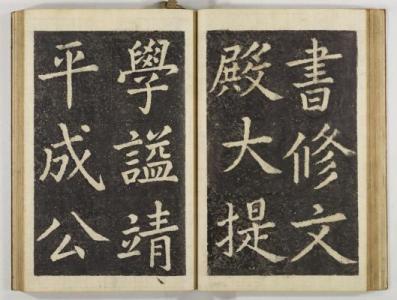 書修文
殿大提
學謚靖
平成公